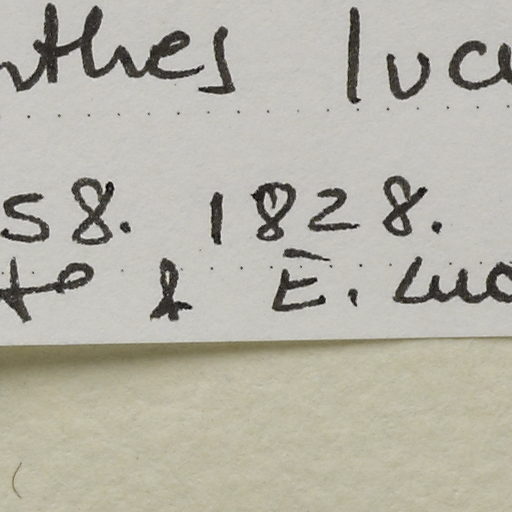 nthes luc
58. 1828.
te & E. Luc